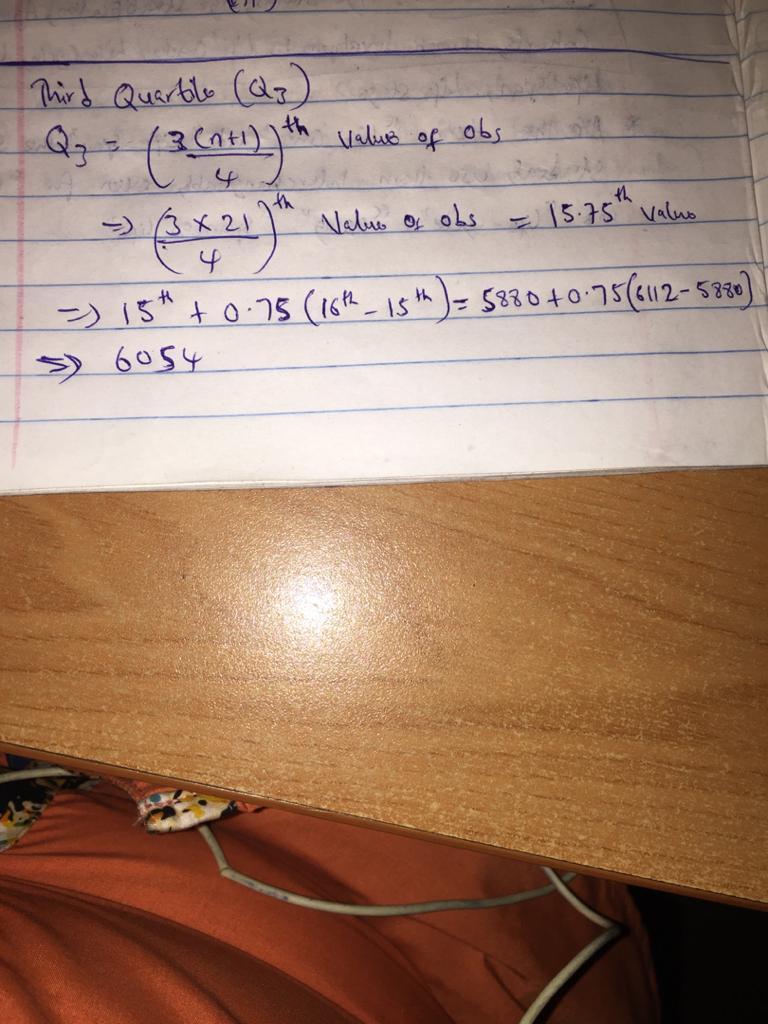 Third Quartile (Q₃)
Q₃ = (3(n+1)/4)ᵗʰ Value of obs
=> (3 × 21/4)ᵗʰ Value of obs = 15.75ᵗʰ Value
=> 15ᵗʰ + 0.75 (16ᵗʰ - 15ᵗʰ) = 5880 + 0.75(6112 - 5880)
=> 6054